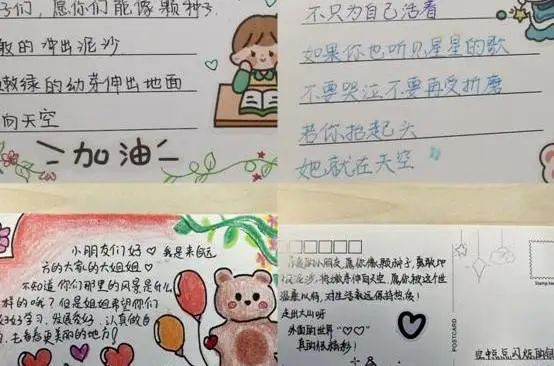 子们，愿你们能像颗种子
敢的冲出泥沙
嫩绿的幼芽伸出地面
向天空
加油
不只为自己活着
如果你也听见星星的歌
不要哭泣不要再受折磨
若你抬起头
她就在天空
小朋友们好♡ 我是来自远
方的大家的大姐姐♡
不知道你们那里的风景是什么
样的呢？但是姐姐希望你们
好好学习，发展爱好，认真的自
去看看更美的地方！
的小朋友，愿你像颗种子，勇敢地
冲破泥沙，将嫩芽伸向天空，愿你被这个世
温柔以待，对生活永远保持热爱！
走出大山呀
外面的世界“♡♡”
真的很精彩！
POSTCARD
Stamp